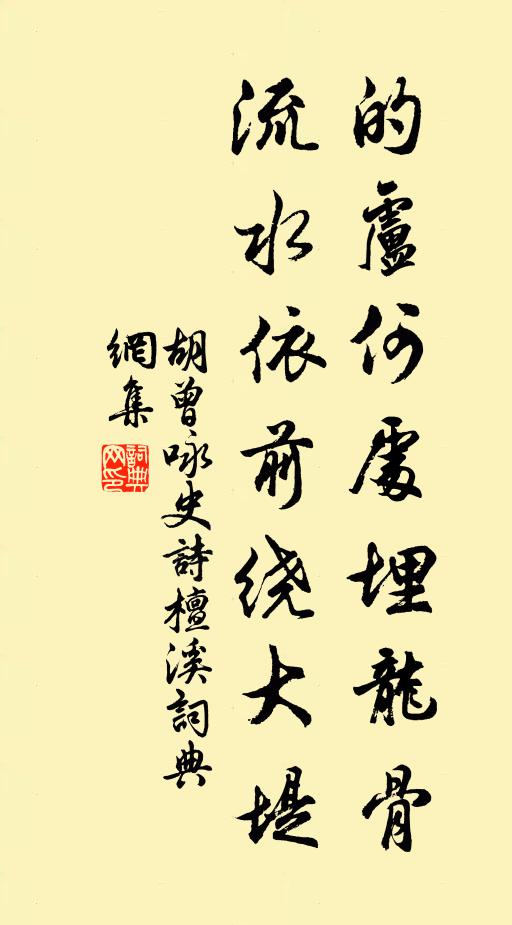 的盧何處埋龍骨
流水依前绕大堤
胡曾咏史詩檀溪詞典
網集
詞典
网印